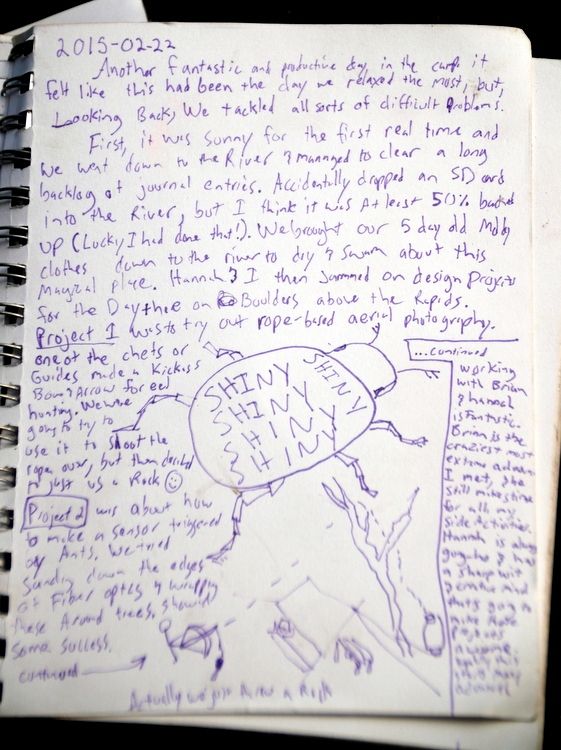 2015-02-22
Another fantastic and productive day, in the camp it
felt like this had been the day we relaxed the most, but,
Looking Back, We tackled all sorts of difficult problems.
First, it was sunny for the first real time and
we went down to the River & managed to clear a long
backlog of journal entries. Accidentally dropped an SD card
into the River, but I think it was At least 50% backed
up (Lucky I had done that!). We brought our 5 day old Moldy
clothes down to the river to dry & swam about this
Magical place. Hannah & I then jammed on design Projects
for the Day there on Boulders above the Rapids.
Project 1 was to try out rope-based aerial photography.
one of the chefs or
Guides made a Kickass
Bow & Arrow for eel
hunting. We were
going to try to
use it to shoot the
rope over, but then decided
to just us a Rock
Project 2 was about how
to make a sensor triggered
by Ants. We tried
Sanding down the edges
of Fiber optics & wrapping
these Around trees. showed
some success.
continued
SHINY
SHINY
SHINY
SHINY
SHINY
Actually we just threw a Rock
...continued
working
with Brian
& hannah
is Fantastic.
Brian is the
craziest most
extreme
I met, & he
still makes time
for all my
side Activities.
Hannah is always
& has
a sharp wit
& creative mind
thats going to
make these
awesome.